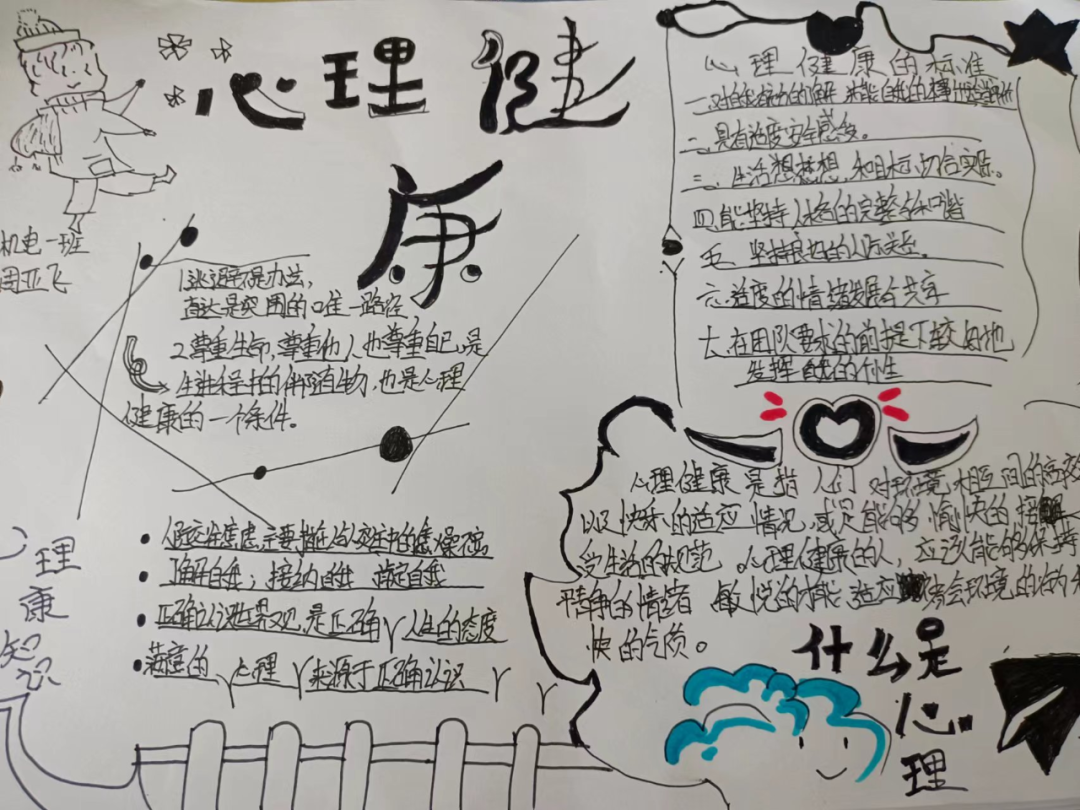 心理健
康
机电一班
周亚飞
1.逃避不是办法,
直达是突围的唯一路径
2.尊重生命,尊重他人也尊重自己,是
生进程中的伴随生物,也是心理
健康的一个条件。
心理健康的标准
二、具有适度安全感
三、生活想梦想,和目标,切合实际。
四、能坚持人格的完整与和谐
五、坚持良好的人际关系。
六、适度的情绪发展与共享
七、在团队要求的前提下较好地
发挥自我的个性
心理健康是指人们对环境相互间的高效
以及快乐的适应情况,或是能够愉快的接
受生活的规范。心理健康的人,应该能够保持
平静的情绪 敏悦的才能 适应社会环境的
快的气质。
什么是
心
理
心理
康
知
识
了解自我;接纳自我 肯定自我
正确认识世界观,是正确人生的态度
满意的心理 来源于正确认识